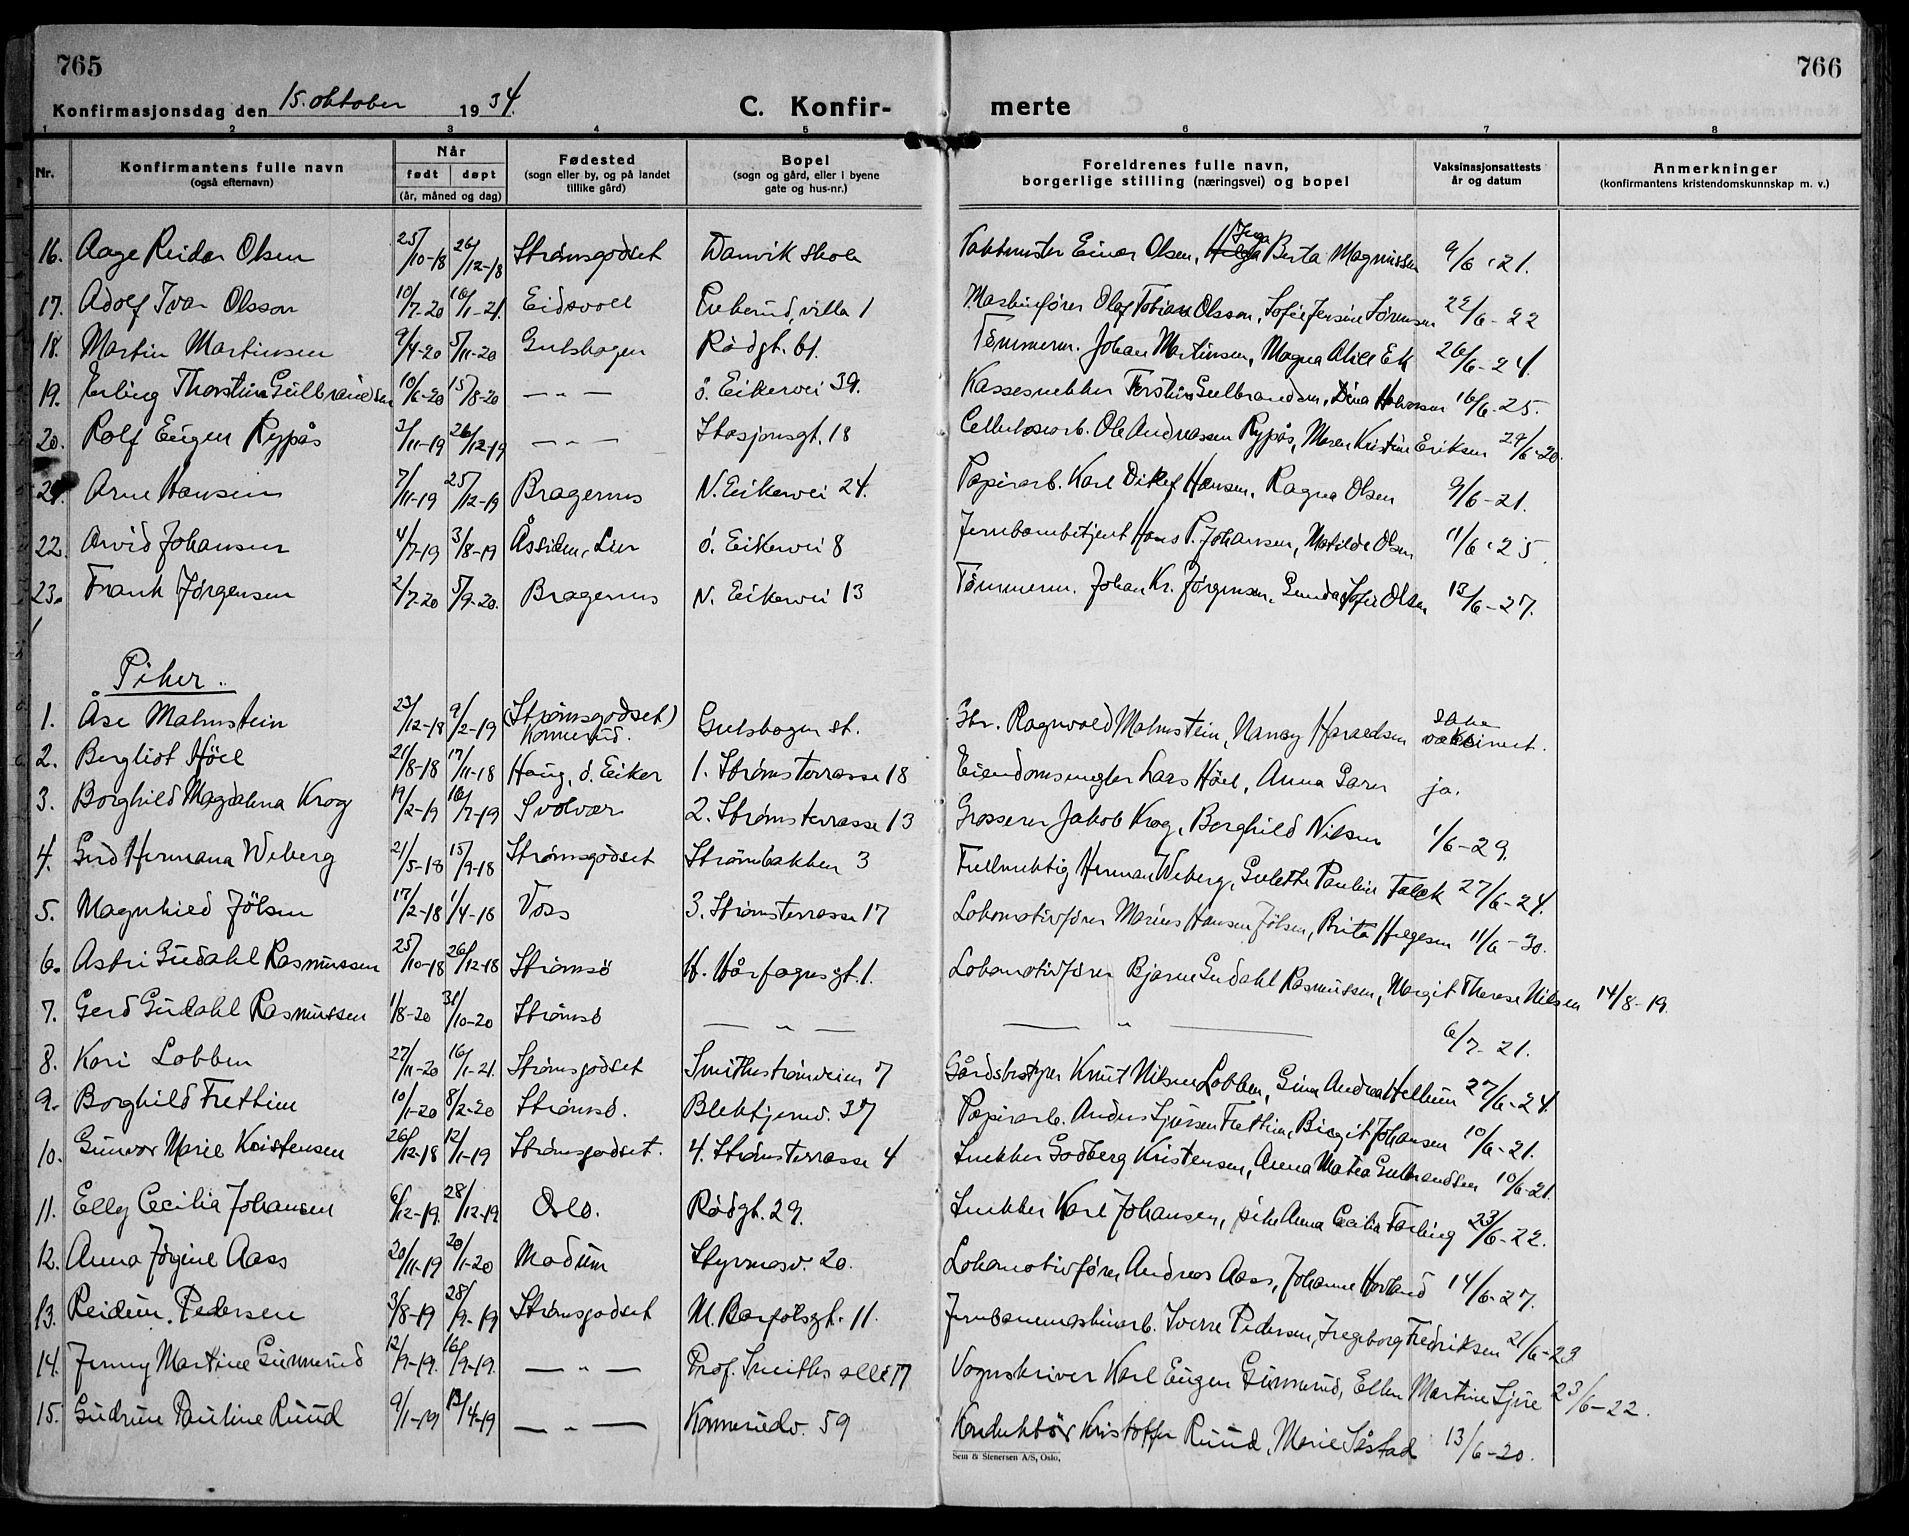 765
766
Konfirmasjonsdag den 15. oktober 1934.
C. Konfir-
merte
1 2 3 4 5 6 7 8
Nr. Konfirmantens fulle navn (også efternavn) Når født døpt (år, måned og dag) Fødested (sogn eller by, og på landet tillike gård) Bopel (sogn og gård, eller i byene gate og hus-nr.) Foreldrenes fulle navn, borgerlige stilling (næringsvei) og bopel Vaksinasjonsattests år og datum Anmerkninger (konfirmantens kristendomskunnskap m. v.)
16. Aage Reidar Olsen 25/10-18 26/12-18 Strømsgodset Danvik Skole Vaktmester Einar Olsen, Helga Inga Berta Magnussen 9/6-21.
17. Adolf Ivar Olsson 10/7-20 16/1-21. Eidsvoll villa 1 Maskinfører Olaf Tobias Olsson, Sofie Jensine Sørensen 22/6-22
18. Martin Martinsen 9/4-20 5/11-20 Gulskogen Rødgt. 61. Tømmerm. Johan Martinsen, Magna Alice Ek 26/6-24.
19. Erling Thorstein Gulbrandsen 10/6-20 15/8-20 — " — ø. Eikervei 39. Kassesnekker Torstein Gulbrandsen, Dina Halvorsen 16/6-25.
20. Rolf Eugen Rypås 3/11-19 26/12-19 — " — Stasjonsgt. 18 Cellulosearb. Ole Andreassen Rypås, Maren Kristine Eriksen 29/6-20.
21. Arne Hansen 7/11-19 25/12-19 Bragernes N. Eikervei 24. Papirarb. Karl Ditlef Hansen, Ragna Olsen 9/6-21.
22. Arvid Johansen 4/7-19 3/8-19 Åssiden, Lier ø. Eikervei 8 Jernbanebetjent Hans P. Johansen, Matilde Olsen 11/6-25.
23. Frank Jørgensen 2/7-20 5/9-20. Bragernes N. Eikervei 13 Tømmerm. Johan Kr. Jørgensen, Gunda Sofie Olsen 13/6-27.
Piker.
1. Åse Malmstein 23/12-18 9/2-19 (Strømsgodset) Konnerud. Gulskogen st. Ragnvald Malmstein, Nancy Haraldsen vaksinert.
2. Bergliot Höel 21/8-18 17/11-18 Haug, ø. Eiker 1. Strømsterrasse 18 Eiendomsmegler Lars Höel, Anna Garen ja.
3. Borghild Magdalena Krog 19/2-19 16/7-19 Svolvær 2. Strømsterrasse 13 Grosserer Jakob Krog, Borghild Nilsen 1/6-29.
4. Gerd Hermana Weberg 21/5-18 15/9-18 Strømsgodset Strømbakken 3 Fullmektig Herman Weberg, Gulette Pauline Falck 27/6-24.
5. Magnhild Jölsen 17/2-18 1/4-18 Voss 3. Strømsterrasse 17 Lokomotivfører Marius Hansen Jölsen, Brita Helgesen 11/6-30.
6. Astri Gudahl Rasmussen 25/10-18 26/12-18 Strømsö H. Hårfagresgt. 1. Lokomotivfører Bjarne Gudahl Rasmussen, Margit Therese Nilsen 14/8-19.
7. Gerd Gudahl Rasmussen 1/8-20 31/10-20 Strømsö — " — — " — 6/7-21.
8. Kari Lobben 27/11-20 16/1-21. Strømsgodset Smithestrømveien 7 Gårdsbestyrer Knut Nilsen Lobben, Gina Andrea Hellum 27/6-24.
9. Borghild Frettim 10/1-20 8/2-20 Strømsö. Blektjernv. 37 Papirarb. Anders Sjursen Frettim, Birgit Johansen 10/6-21.
10. Gunvor Marie Kristensen 26/12-18 12/1-19 Strømsgodset. 4. Strømsterrasse 4 Snekker Godberg Kristensen, Anna Matea Gulbrandsen 10/6-21.
11. Elly Cecilia Johansen 6/12-19. 28/12-19 Oslo. Rødgt. 29. Snekker Karl Johansen, pike Anna Cecilia Farling 23/6-22.
12. Anna Jørgine Aass 20/11-19 20/1-20 Modum Styrmosv. 20. Lokomotivfører Andreas Aass, Johanne Hovland 14/6-27.
13. Reidun Pedersen 3/8-19 28/9-19 Strømsgodset M. Barfotsgt. 11. Jernbanemaskinarb. Sverre Pedersen, Ingeborg Fredriksen 21/6-23
14. Jenny Martine Gunnerud 12/9-19. 16/9-19. — " — Prof. Smiths allé 77 Vognskriver Karl Eugen Gunnerud, Ellen Martine Sjue 23/6-22.
15. Gudrun Pauline Ruud 9/1-19 13/4-19 — " — Konnerudv. 59 Konduktør Kristoffer Ruud, Marie Såstad 13/6-20.
Sem & Stenersen A/S, Oslo.